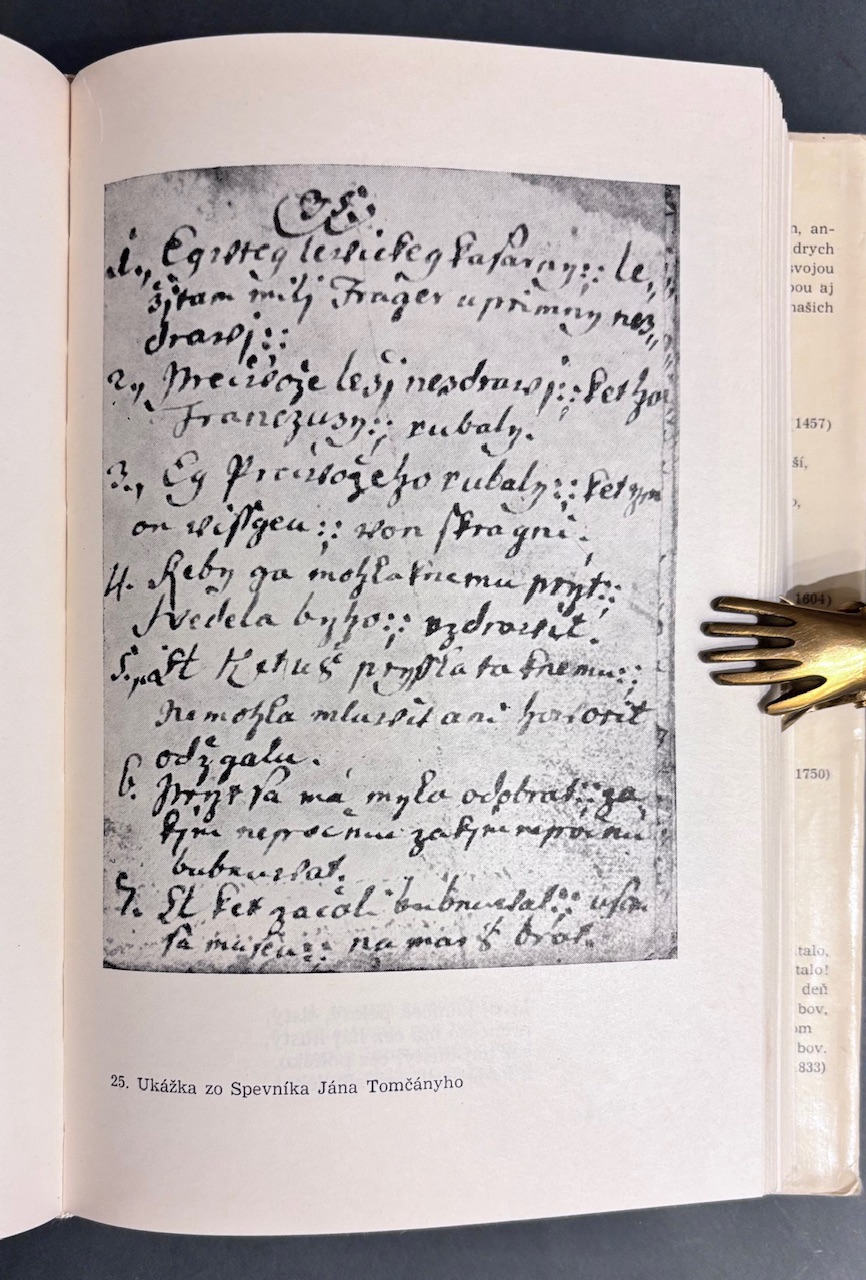 1., Egwteg lewickeg kasarny:: le,,
zj tam milj Frager uprimny nez,,
drawj::
2., Prečiwože lezj nezdrawj:: ket ho
Franczuzy:: rubaly.
3., Eg Prečiwožeho rubaly:: ket
on wissgeu:: von skragni.
4. Keby ga mohla knemu prijt::
Svedela byho:: uzdrawit.
5., Et Ketuš pryssla ta knemu::
Nemohla mluwit ani howorit
odžgalu.
6. Prijt sa má mylo odobrat:: za
kjm nepočnu zakjm nepočnu
bubnuwat.
7. Et ket začali bubnuwat::
sa museu:: na marš brat.
25. Ukážka zo Spevníka Jána Tomčányho
n, an-
drych
svojou
bou aj
našich
1457)
ší,
o,
1604)
1750)
talo,
talo!
deň
bov,
om
bov.
833)